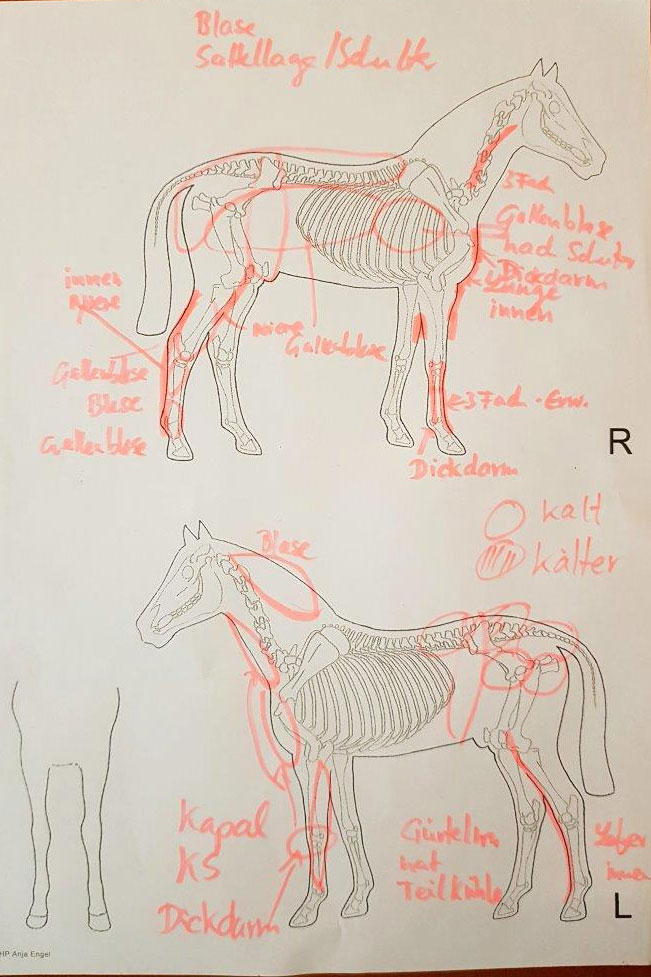 Blase
Sattellage/Schulter
3Fach
Gallenblase
nach Schulter
Dickdarm
Lunge
innen
innen
Niere
Niere
Gallenblase
Gallenblase
Blase
Gallenblase
3Fach-Erw.
Dickdarm
R
kalt
kälter
Blase
Kapal
KS
Dickdarm
Gürtelm
hat
Teilkühle
innen
L
HP Anja Engel